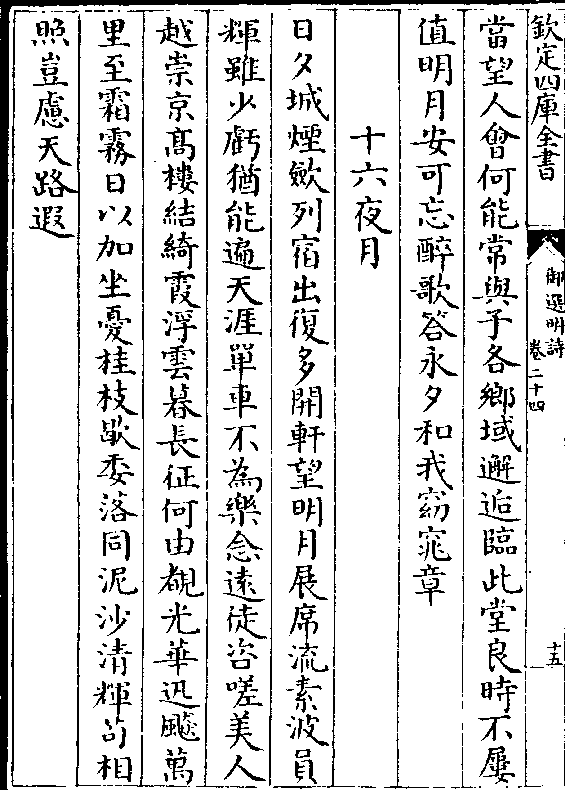 欽定四庫全書
御選明詩
卷二十四
十五
當望人會何能常與子各鄉域邂逅臨此堂良時不屢
值明月安可忘醉歌答永夕和我窈窕章
十六夜月
日夕城煙歛列宿出復多開軒望明月展席流素波員
輝雖少虧猶能遍天涯單車不為樂念遠徒咨嗟美人
越崇京髙樓結綺霞浮雲暮長征何由覩光華迅飈萬
里至霜霧日以加坐憂桂枝歇委落同泥沙清輝茍相
照豈慮天路遐